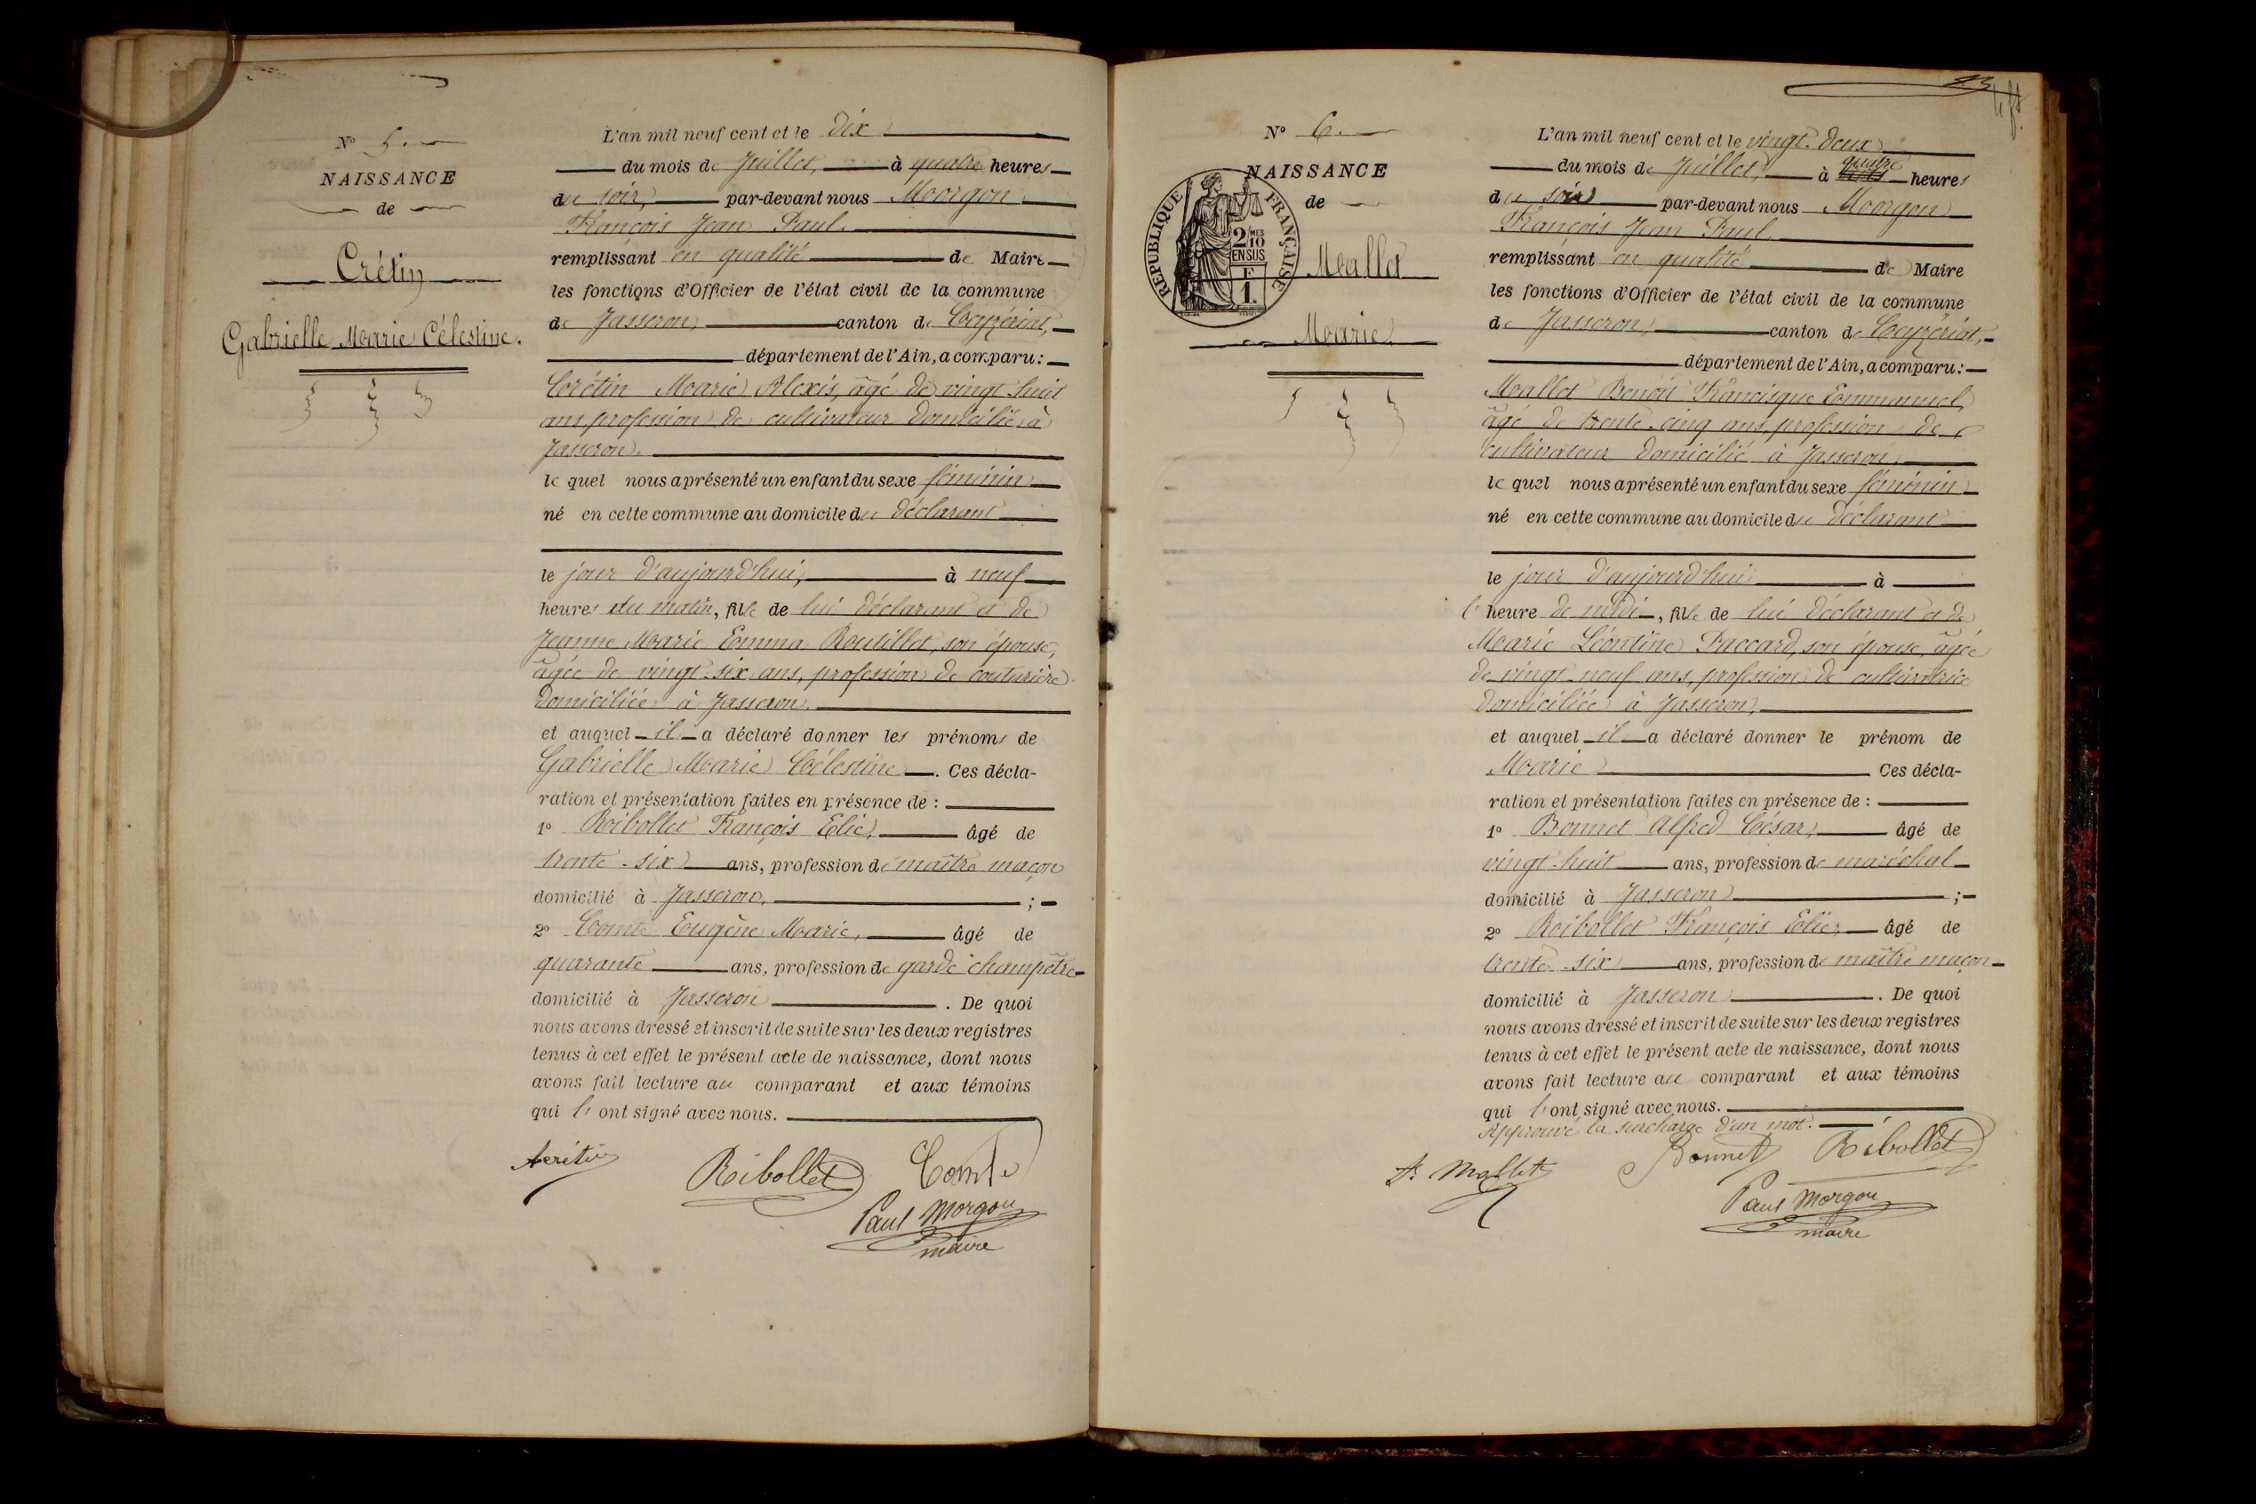 N° 5.
NAISSANCE
de
Crétin
Gabrielle Marie Célestine.
L'an mil neuf cent et le Dix
du mois de Juillet, à quatre heures
du soir, par-devant nous Morgon
François Jean Paul.
remplissant en qualité de Maire
les fonctions d'Officier de l'état civil de la commune
de Jasseron, canton de Ceyzériat,
département de l'Ain, a comparu :
Crétin Marie Alexis, âgé de vingt huit
ans, profession de cultivateur domicilié à
Jasseron.
le quel nous a présenté un enfant du sexe féminin
né en cette commune au domicile du déclarant
le jour d'aujourd'hui, à neuf
heures du matin, fille de lui déclarant et de
Jeanne Marie Emma Routillet, son épouse,
âgée de vingt-six ans, profession de couturière
domiciliée à Jasseron.
et auquel il a déclaré donner les prénoms de
Gabrielle Marie Célestine. Ces décla-
ration et présentation faites en présence de :
1° Ribollet François Elie, âgé de
trente-six ans, profession de maître maçon
domicilié à Jasseron, ;
2° Comte Eugène Marie, âgé de
quarante ans, profession de garde champêtre
domicilié à Jasseron . De quoi
nous avons dressé et inscrit de suite sur les deux registres
tenus à cet effet le présent acte de naissance, dont nous
avons fait lecture au comparant et aux témoins
qui l'ont signé avec nous.
Acrétin
Ribollet
Comte
Paul Morgon
maire
13
N° 6.
NAISSANCE
de
REPUBLIQUE FRANÇAISE
2/10
EN SUS
F
1.
Mallet
Marie
L'an mil neuf cent et le vingt-deux
du mois de Juillet, à quatre heures
du soir par-devant nous Morgon
François Jean Paul
remplissant en qualité de Maire
les fonctions d'Officier de l'état civil de la commune
de Jasseron, canton de Ceyzériat,
département de l'Ain, a comparu :
Mallet Benoît Francisque Emmanuel,
âgé de trente-cinq ans, profession de
cultivateur domicilié à Jasseron,
le quel nous a présenté un enfant du sexe féminin
né en cette commune au domicile du déclarant
le jour d'aujourd'hui à
l'heure de midi, fille de lui déclarant et de
Marie Léontine Paccard, son épouse, âgée
de vingt-neuf ans, profession de cultivatrice
domiciliée à Jasseron,
et auquel il a déclaré donner le prénom de
Marie Ces décla-
ration et présentation faites en présence de :
1° Bonnet Alfred César, âgé de
vingt-huit ans, profession de maréchal
domicilié à Jasseron ;
2° Ribollet François Elie, âgé de
trente-six ans, profession de maître maçon
domicilié à Jasseron . De quoi
nous avons dressé et inscrit de suite sur les deux registres
tenus à cet effet le présent acte de naissance, dont nous
avons fait lecture au comparant et aux témoins
qui l'ont signé avec nous.
Approuvé la surcharge d'un mot.
Mallet
Bonnet
Ribollet
Paul Morgon
maire